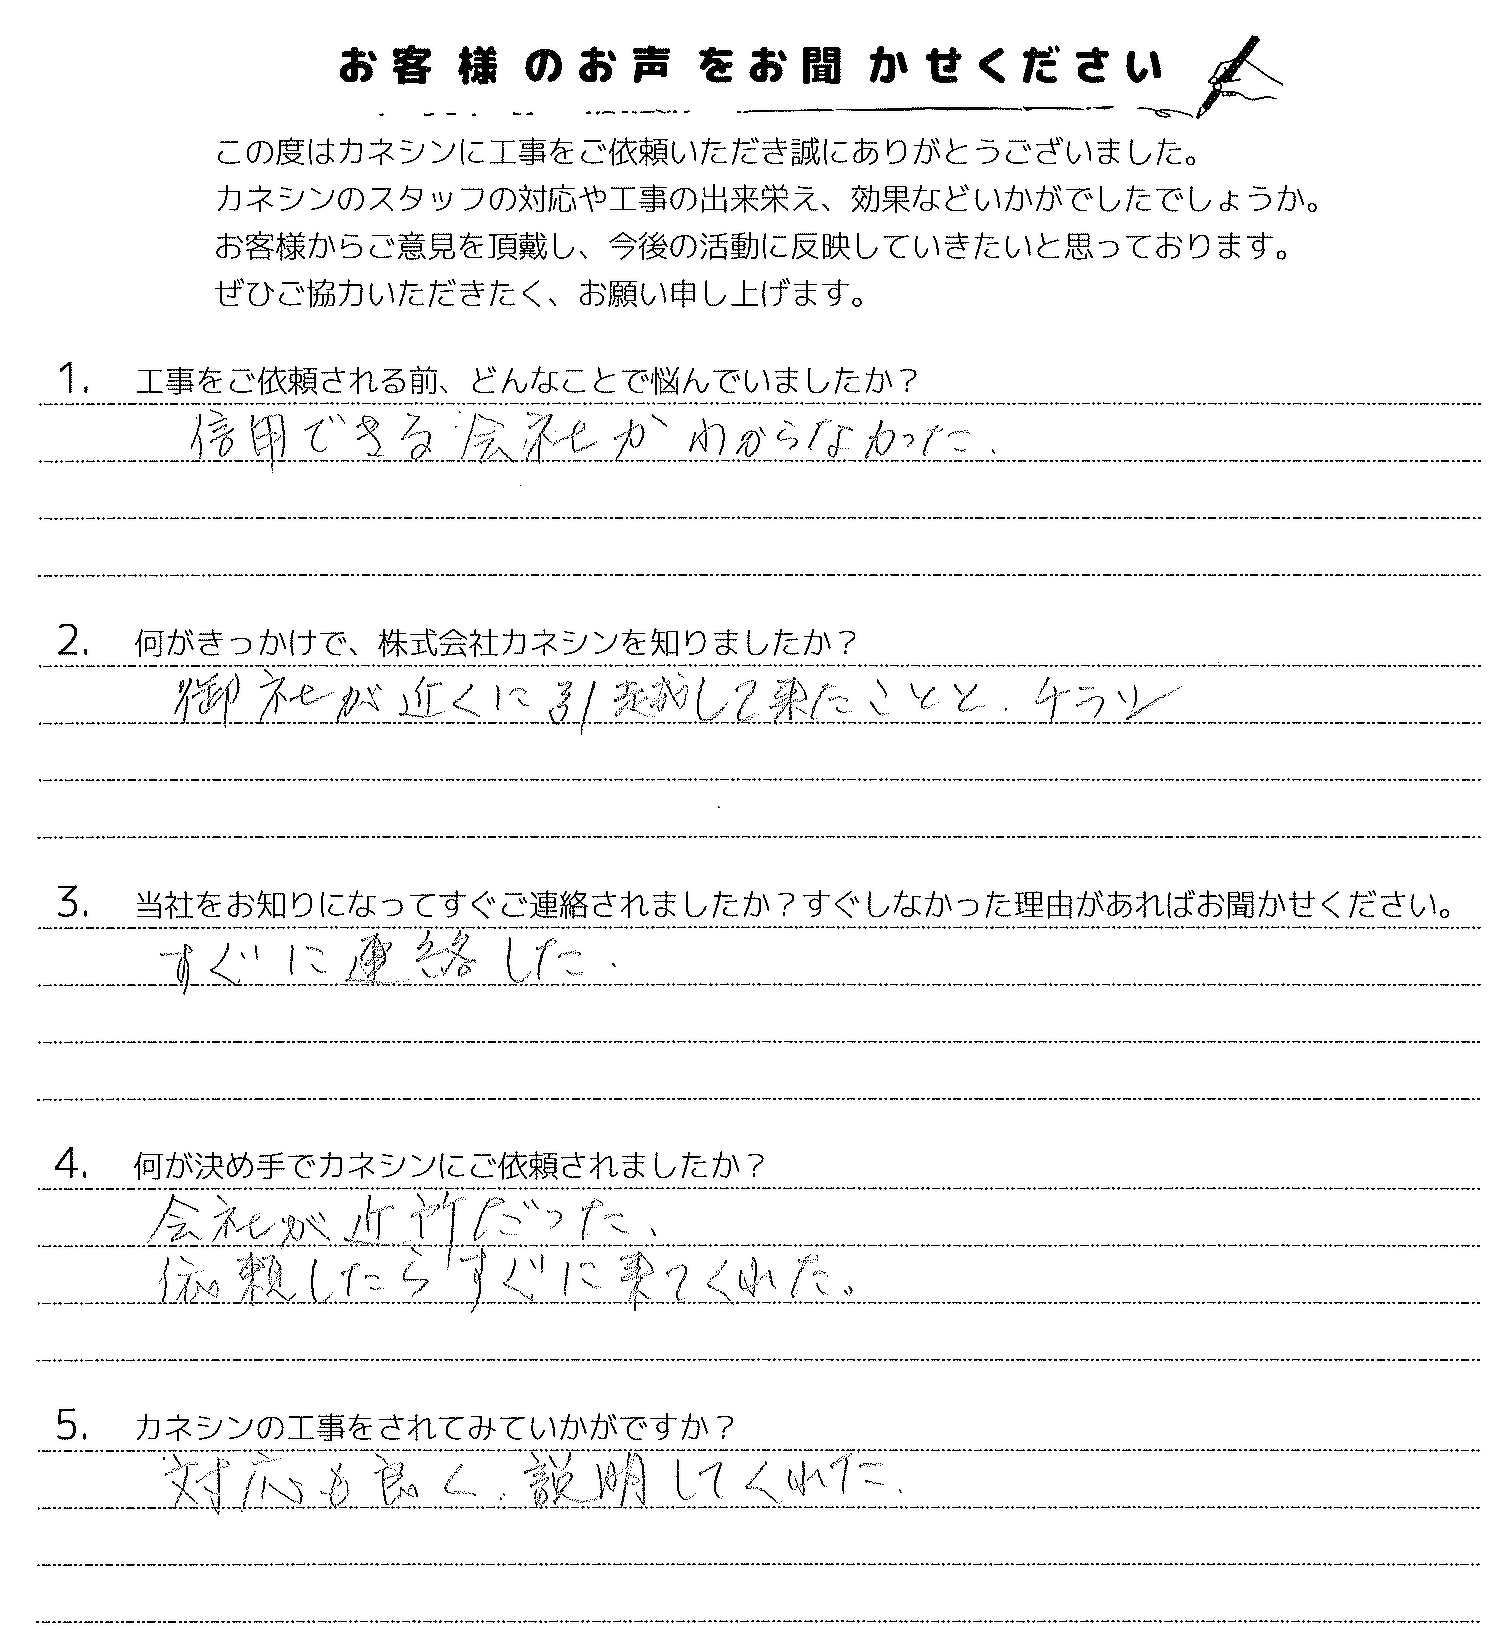 お客様のお声をお聞かせください
この度はカネシンに工事をご依頼いただき誠にありがとうございました。
カネシンのスタッフの対応や工事の出来栄え、効果などいかがでしたでしょうか。
お客様からご意見を頂戴し、今後の活動に反映していきたいと思っております。
ぜひご協力いただきたく、お願い申し上げます。
1. 工事をご依頼される前、どんなことで悩んでいましたか？
信用できる会社がわからなかった.
2. 何がきっかけで、株式会社カネシンを知りましたか？
御社が近くに引越して来たことと. チラシ
3. 当社をお知りになってすぐご連絡されましたか？すぐしなかった理由があればお聞かせください。
すぐに連絡した.
4. 何が決め手でカネシンにご依頼されましたか？
会社が近所だった、
依頼したらすぐに来てくれた。
5. カネシンの工事をされてみていかがですか？
対応も良く. 説明してくれた.